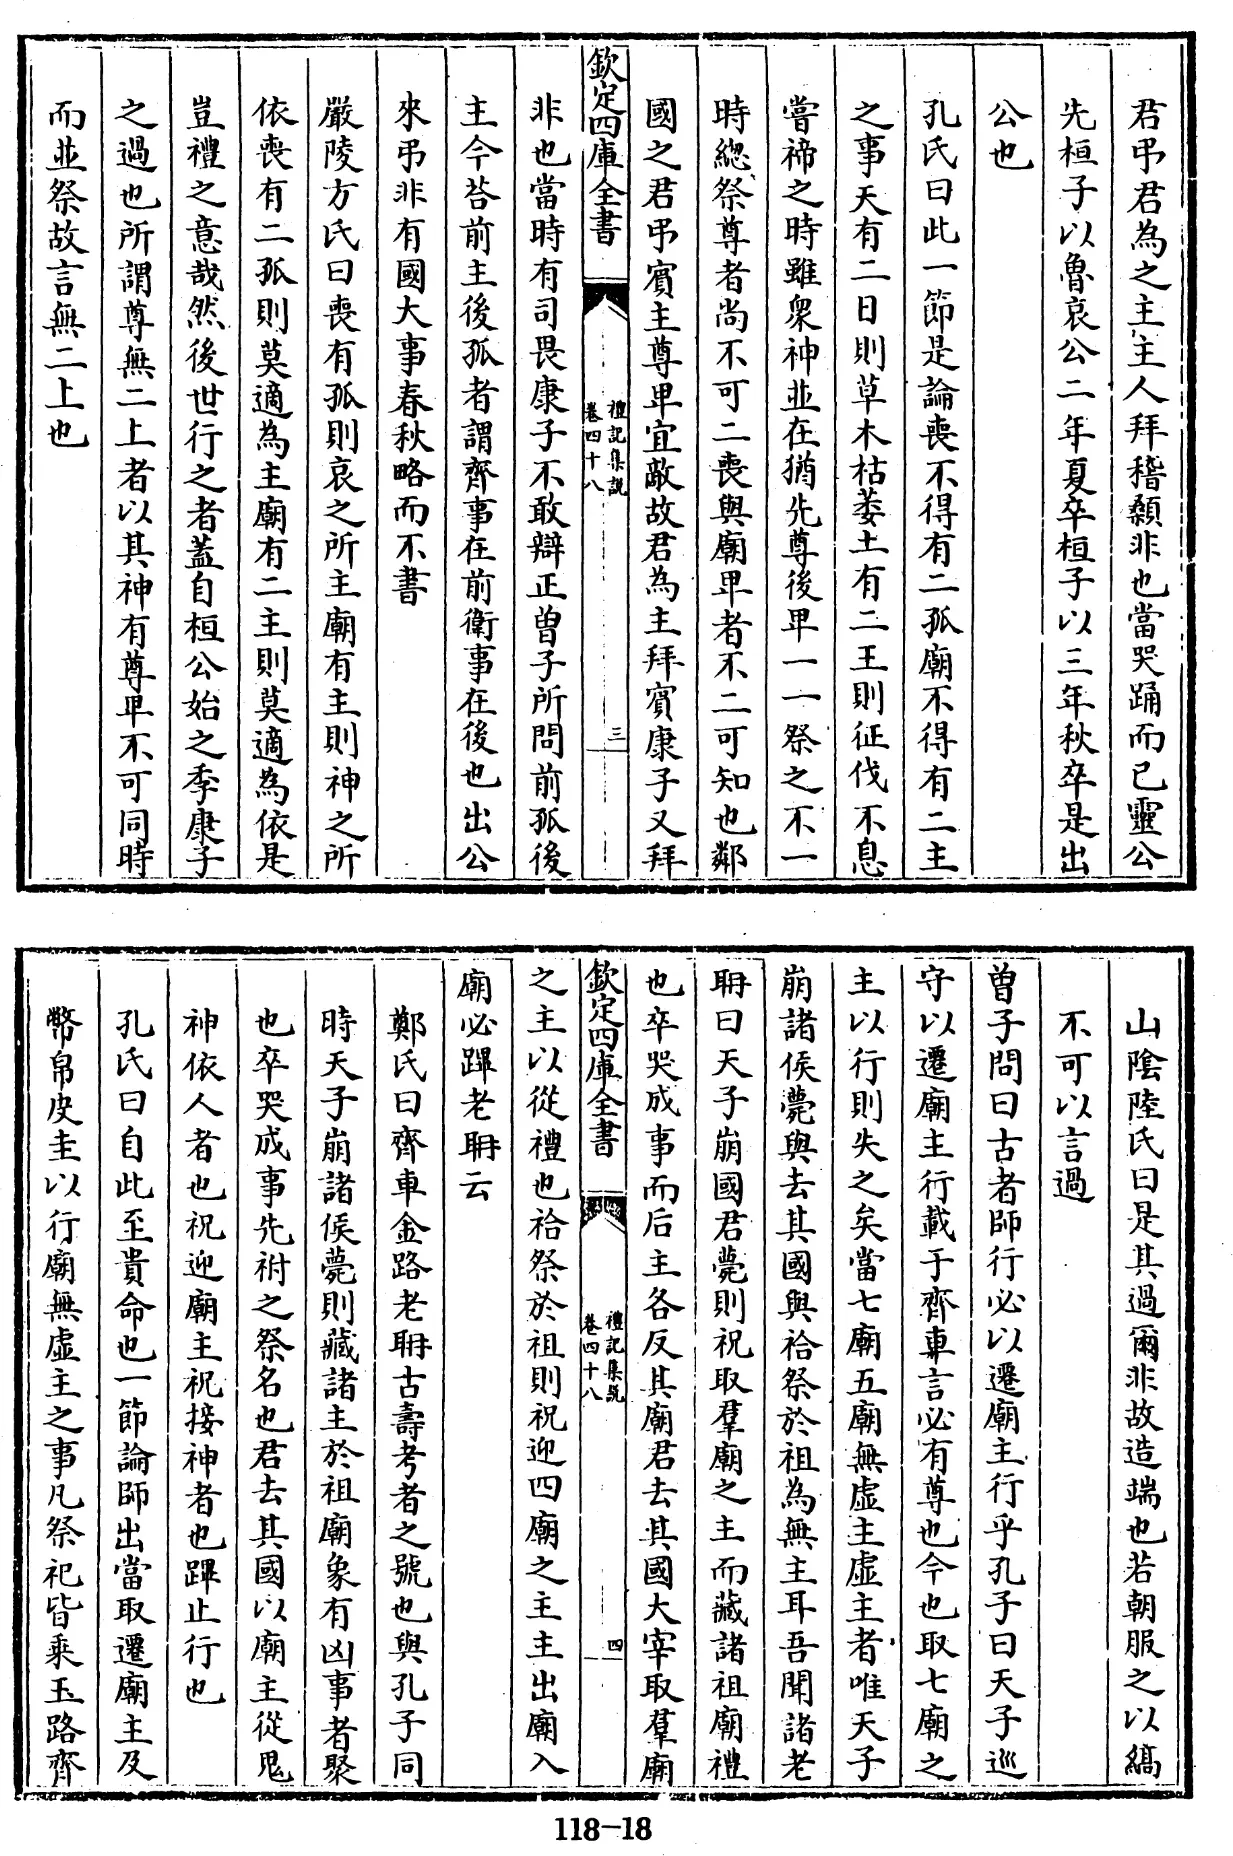 君弔君為之主主人拜稽顙非也當哭踊而已靈公
先桓子以魯哀公二年夏卒桓子以三年秋卒是出
公也
孔氏曰此一節是論喪不得有二孤廟不得有二主
之事天有二日則草木枯萎土有二王則征伐不息
嘗禘之時雖衆神並在猶先尊後卑一一祭之不一
時總祭尊者尚不可二喪與廟卑者不二可知也鄰
國之君弔賓主尊卑宜敵故君為主拜賓康子又拜
欽定四庫全書
禮記集說
卷四十八
三
非也當時有司畏康子不敢辯正曾子所問前孤後
主今荅前主後孤者謂齊事在前衛事在後也出公
來弔非有國大事春秋略而不書
嚴陵方氏曰喪有孤則哀之所主廟有主則神之所
依喪有二孤則莫適為主廟有二主則莫適為依是
豈禮之意哉然後世行之者蓋自桓公始之季康子
之過也所謂尊無二上者以其神有尊卑不可同時
而並祭故言無二上也
山陰陸氏曰是其過爾非故造端也若朝服之以縞
不可以言過
曾子問曰古者師行必以遷廟主行乎孔子曰天子巡
守以遷廟主行載于齊車言必有尊也今也取七廟之
主以行則失之矣當七廟五廟無虛主虛主者唯天子
崩諸侯薨與去其國與祫祭於祖為無主耳吾聞諸老
耼曰天子崩國君薨則祝取羣廟之主而藏諸祖廟禮
也卒哭成事而后主各反其廟君去其國大宰取羣廟
欽定四庫全書
禮記集說
卷四十八
四
之主以從禮也祫祭於祖則祝迎四廟之主主出廟入
廟必蹕老耼云
鄭氏曰齊車金路老耼古壽考者之號也與孔子同
時天子崩諸侯薨則藏諸主於祖廟象有凶事者聚
也卒哭成事先祔之祭名也君去其國以廟主從鬼
神依人者也祝迎廟主祝接神者也蹕止行也
孔氏曰自此至貴命也一節論師出當取遷廟主及
幣帛皮圭以行廟無虛主之事凡祭祀皆乘玉路齊
118-18